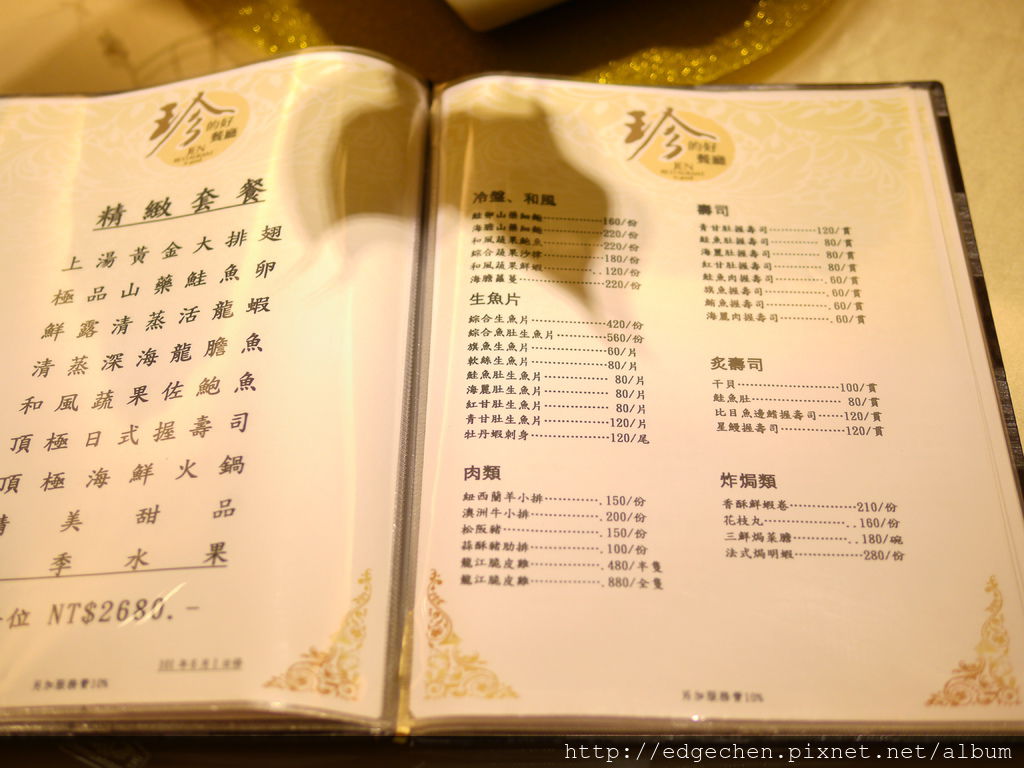 珍
的好
餐廳
JEN
精緻套餐
上湯黃金大排翅
極品山藥鮭魚卵
鮮露清蒸活龍蝦
清蒸深海龍膽魚
和風蔬果佐鮑魚
頂極日式握壽司
頂極海鮮火鍋
精美甜品
季水果
位 NT$2680.-
另加服務費10%
珍
的好
餐廳
JEN
RESTAURANT
冷盤、和風
鮭卵山藥細麵 160/份
海膽山藥細麵 220/份
和風蔬果鮑魚 220/份
綜合蔬果沙律 180/份
和風蔬果鮮蝦 120/份
海膽蘿蔓 220/份
生魚片
綜合生魚片 420/份
綜合魚肚生魚片 560/份
旗魚生魚片 60/片
軟絲生魚片 80/片
鮭魚肚生魚片 80/片
海麗肚生魚片 80/片
紅甘肚生魚片 80/片
青甘肚生魚片 120/片
牡丹蝦刺身 120/尾
肉類
紐西蘭羊小排 150/份
澳洲牛小排 200/份
松阪豬 150/份
蒜酥豬肋排 100/份
龍江脆皮雞 480/半隻
龍江脆皮雞 880/全隻
壽司
青甘肚握壽司 120/貫
鮭魚肚握壽司 80/貫
海麗肚握壽司 80/貫
紅甘肚握壽司 80/貫
鮭魚肉握壽司 60/貫
旗魚握壽司 60/貫
鮪魚握壽司 60/貫
海麗肉握壽司 60/貫
炙壽司
干貝 100/貫
鮭魚肚 80/貫
比目魚邊鰭握壽司 120/貫
星鰻握壽司 120/貫
炸焗類
香酥鮮蝦卷 210/份
花枝丸 160/份
三鮮焗菜膽 180/碗
法式焗明蝦 280/份
另加服務費10%
http://edgechen.pixnet.net/album